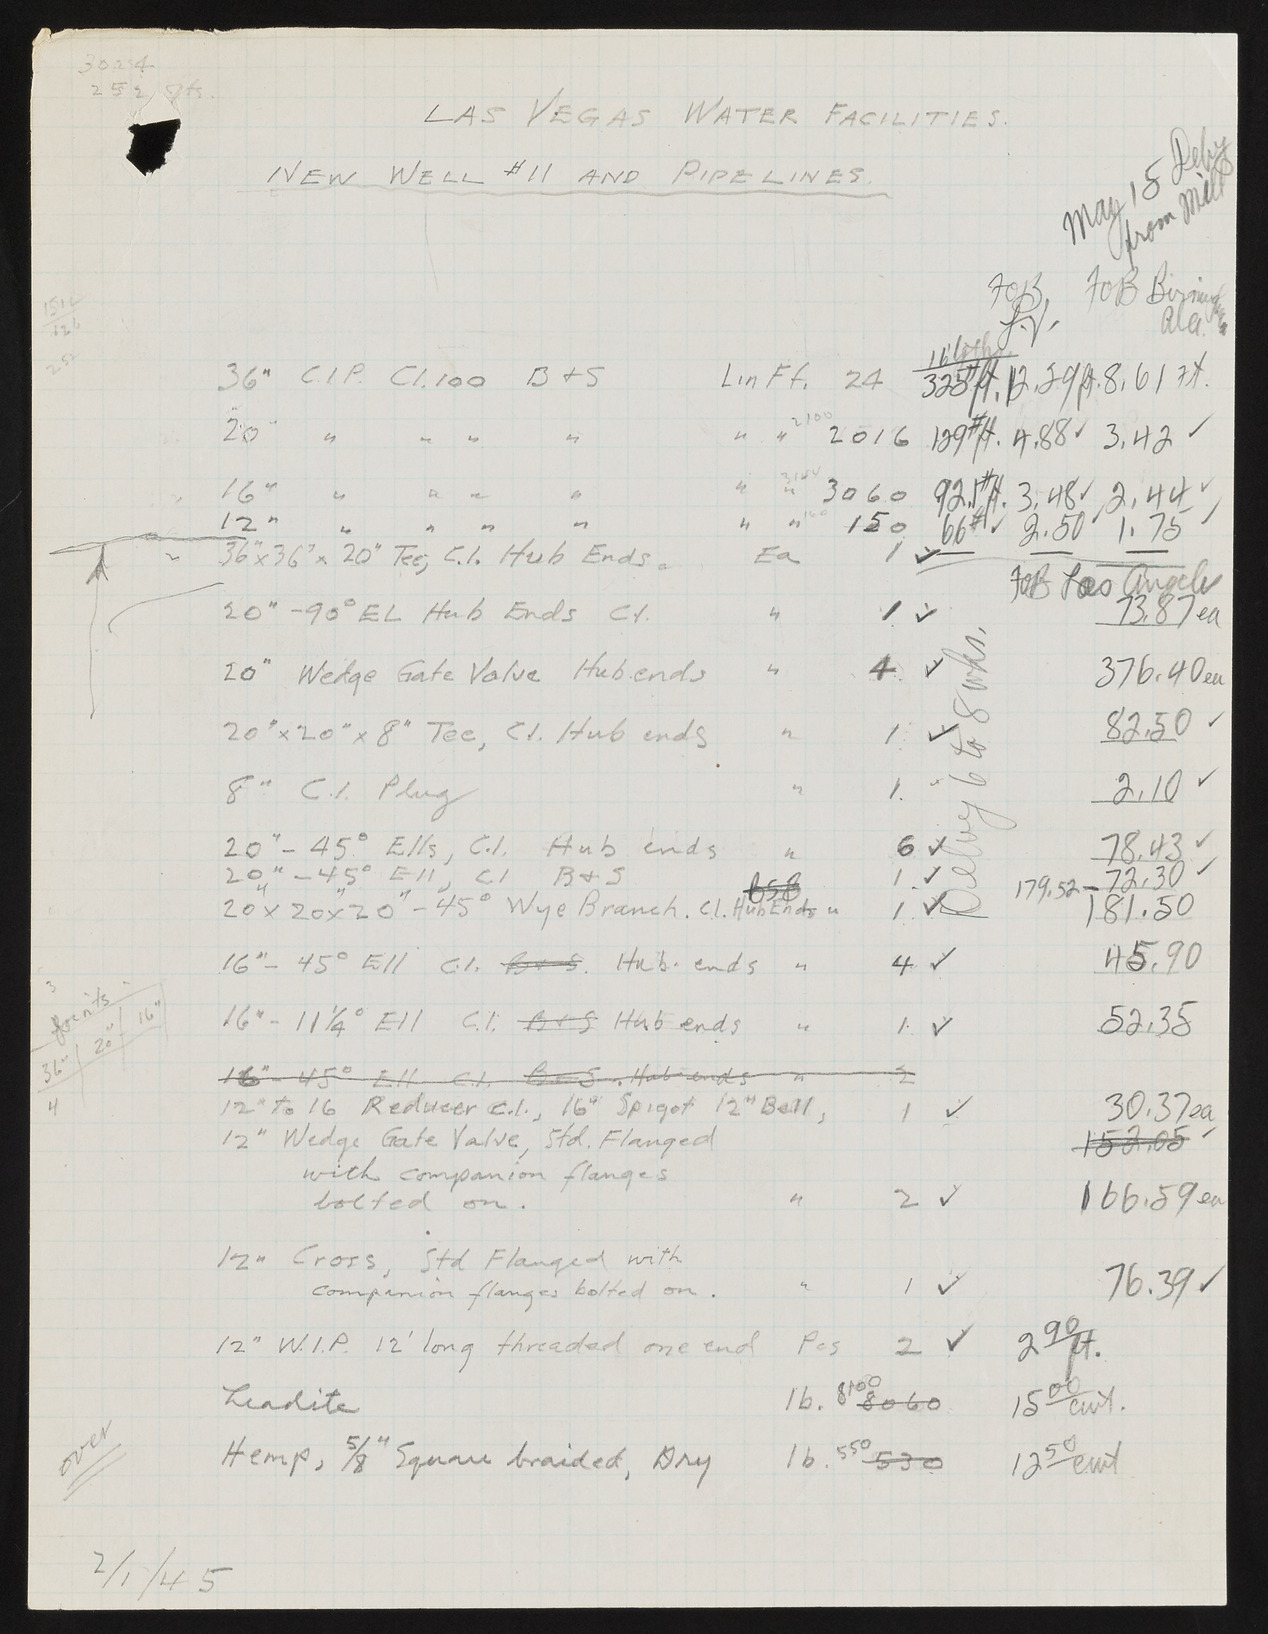 252
LAS VEGAS WATER FACILITIES.
NEW WELL #11 AND PIPELINES.
May 15 Delvy
from Mill
FOB
L.V.
FOB Birmingham
Ala.
36" C.I.P. Cl.100 B+S Lin Ft. 24 325#/ft. 12.29/ft. 8.61 ft.
20" " " " " " " 2100 2016 129#/ft. 4.88 ✓ 3.42 ✓
16" " " " " " " 3144 3060 92.1#/ft. 3.48 ✓ 2.44 ✓
12" " " " " " " 150 66# ✓ 2.50 ✓ 1.75 ✓
36"x36"x20" Tee, C.I. Hub Ends. Ea 1 ✓
FOB Los Angeles
20"-90° EL Hub Ends C.I. " 1 ✓ 73.87 ea
20" Wedge Gate Valve Hub ends " 4 ✓ 376.40 ea
20"x20"x8" Tee, C.I. Hub ends " 1 ✓ 82.50 ✓
8" C.I. Plug " 1. " 2.10 ✓
Delvy 6 to 8 wks.
20"-45° Ells, C.I. Hub ends " 6 ✓ 78.43 ✓
20"-45° Ell, C.I. B+S 1. ✓ 72.30 ✓
B&B
20"x20"x20"-45° Wye Branch. C.I. Hub Ends " 1. ✓ 179.52 - 181.50
16"-45° Ell C.I. B+S. Hub ends " 4 ✓ 45.90
16"-11¼° Ell C.I. B+S Hub ends " 1. ✓ 52.35
16"-45° Ell C.I. B+S. Hub ends " 2
12" to 16 Reducer C.I., 16" Spigot 12" Bell, 1 ✓ 30.37 ea
12" Wedge Gate Valve, Std. Flanged 152.05 ✓
with companion flanges
bolted on. " 2 ✓ 166.59 ea
12" Cross, Std Flanged with
companion flanges bolted on. " 1 ✓ 76.39 ✓
12" W.I.P. 12' long threaded one end Pcs 2 ✓ 2.90/ft.
Leadite lb. 8100 8060 15.00/cwt.
Hemp, 5/8" Square braided, Dry lb. 550 530 12.50/cwt
Joints
36" 20" 16"
4
over
2/1/45